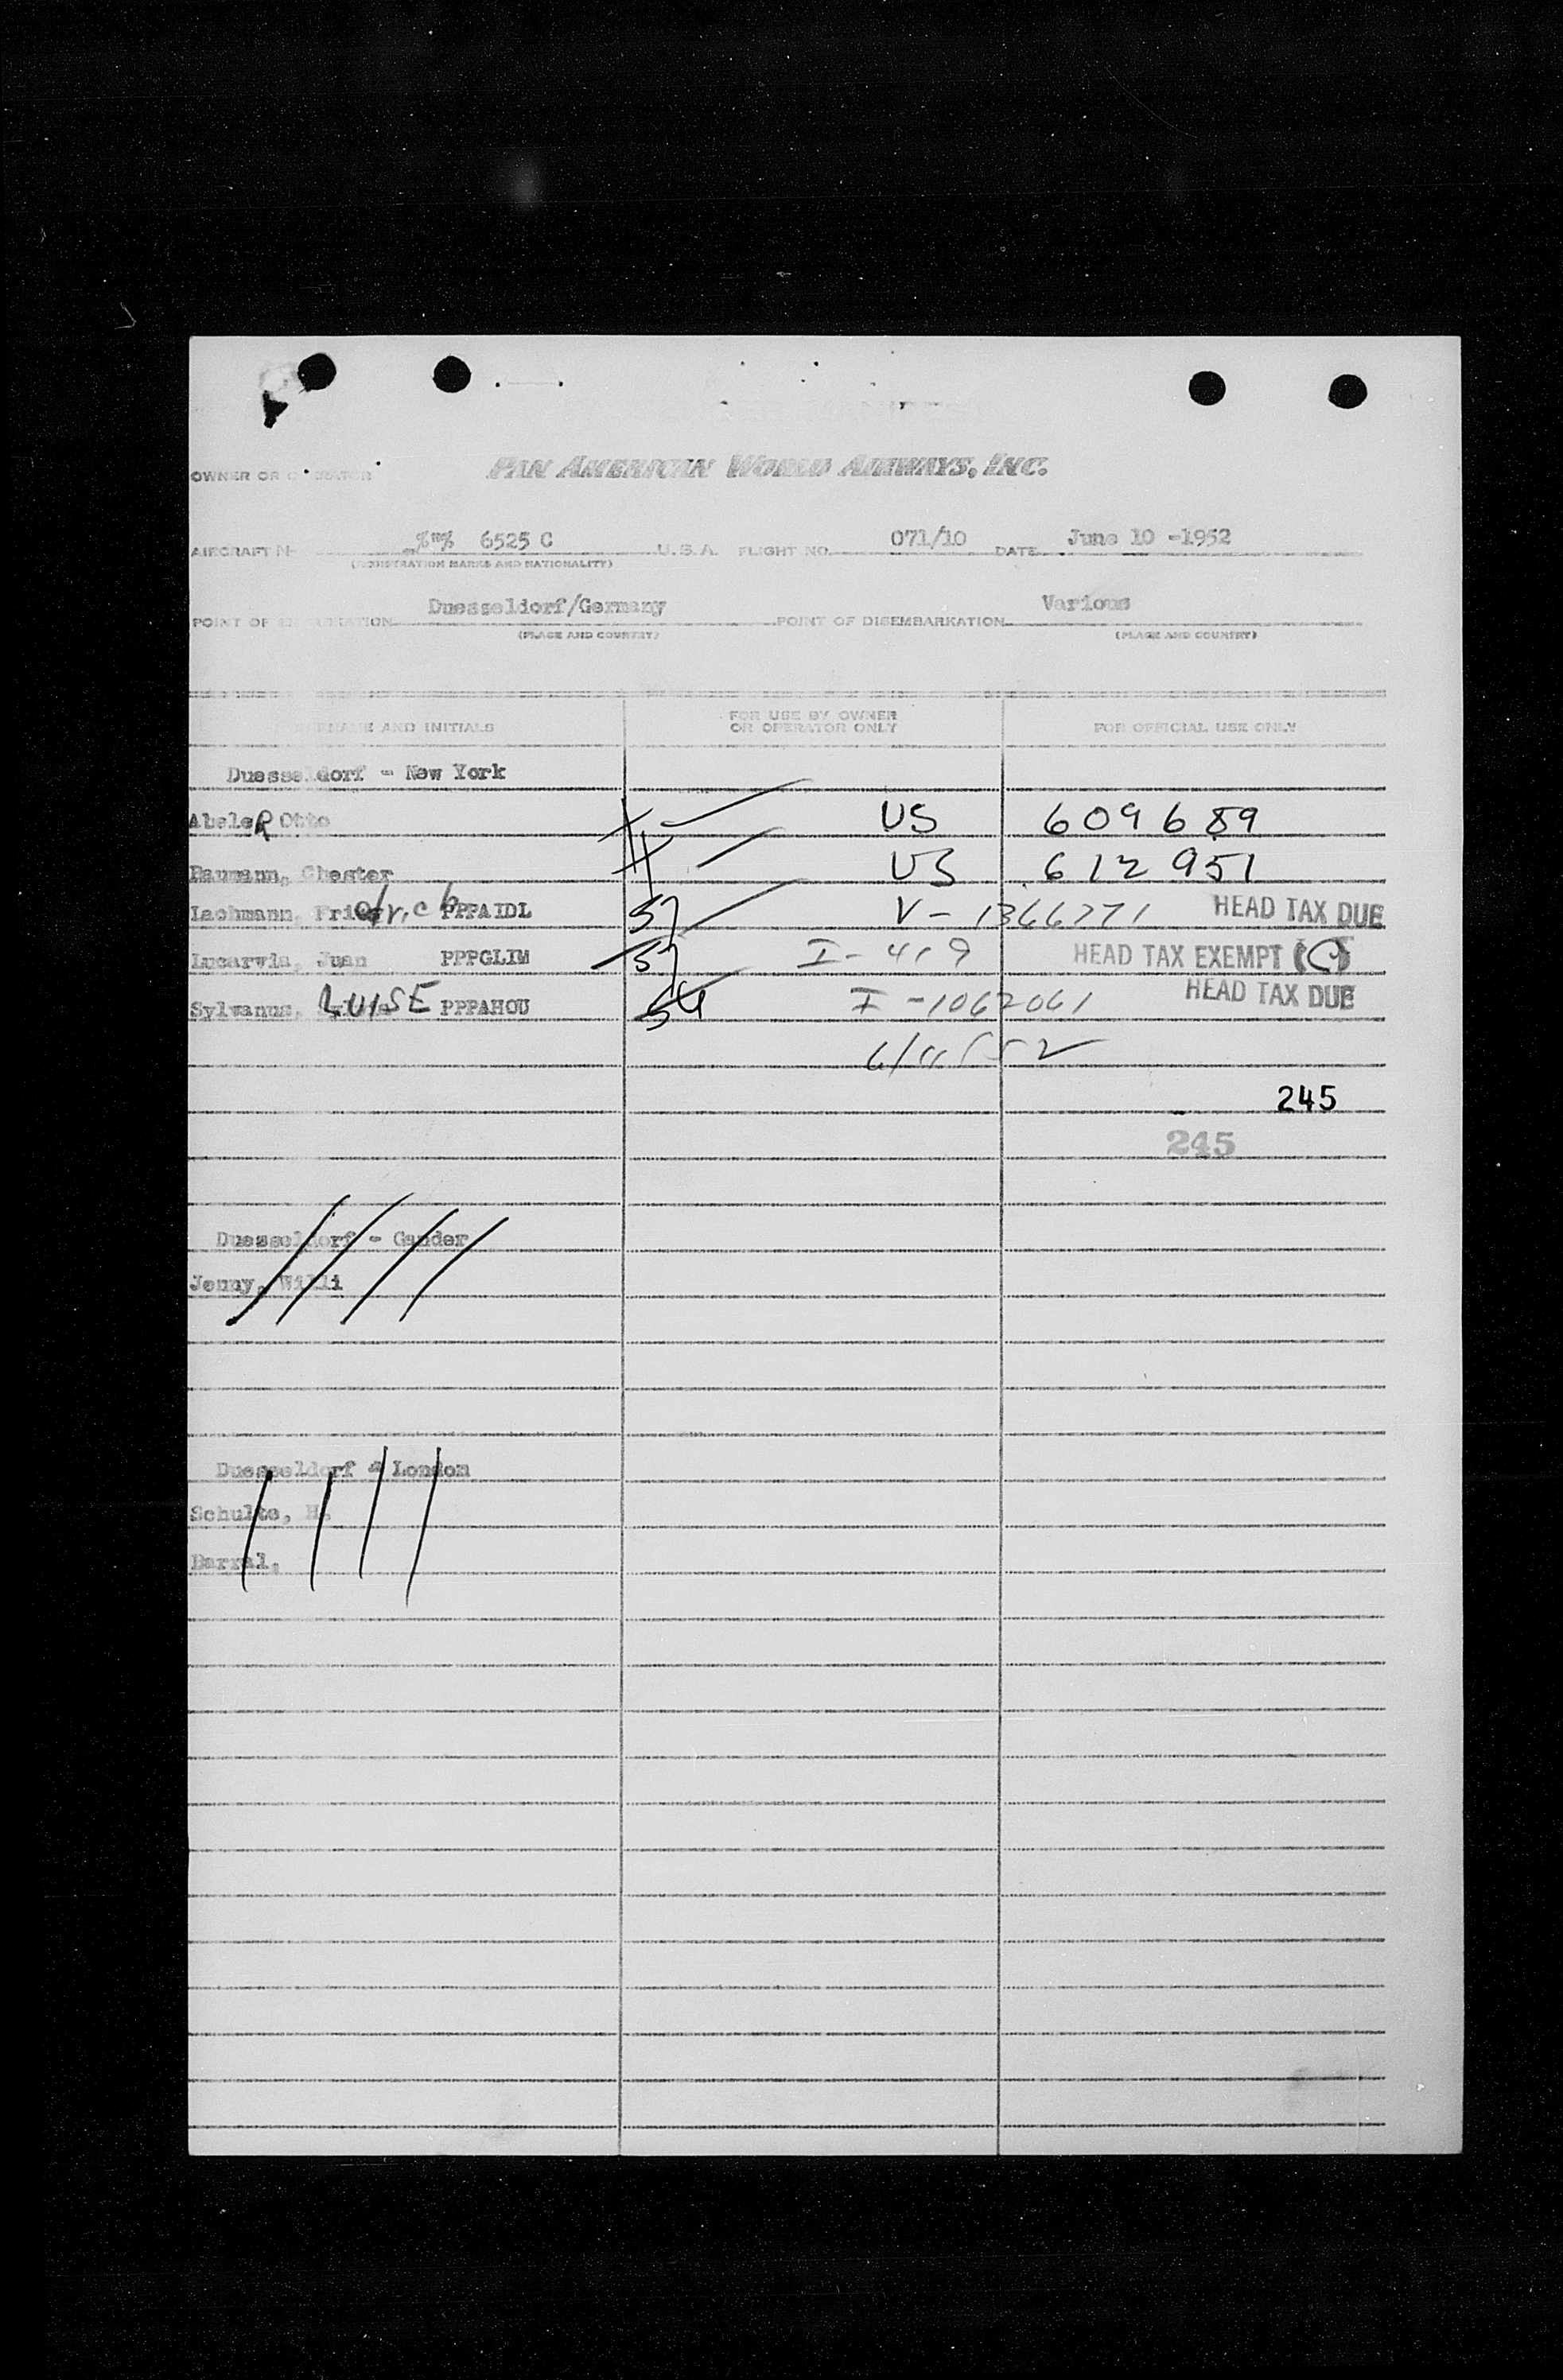 OWNER OR OPERATOR PAN AMERICAN WORLD AIRWAYS, INC.
AIRCRAFT N 6525 C U.S.A. FLIGHT NO. 071/10 DATE June 10 -1952
(REGISTRATION MARKS AND NATIONALITY)
POINT OF EMBARKATION Duesseldorf/Germany POINT OF DISEMBARKATION Various
(PLACE AND COUNTRY) (PLACE AND COUNTRY)
SURNAME AND INITIALS FOR USE BY OWNER OR OPERATOR ONLY FOR OFFICIAL USE ONLY
Duesseldorf - New York
Abele R Otto US 609689
Baumann, Chester US 612951
Lachmann, Friedrich PPPAIDL 57 V-1366771 HEAD TAX DUE
Juan PPPGLIM 57 I-419 HEAD TAX EXEMPT
Sylvanus, LUISE PPPAHOU 54 I-1062061 HEAD TAX DUE
6/11/52
245
245
Duesseldorf - Gander
Jenny, Willi
Duesseldorf - London
Schulte, H.
Barral,